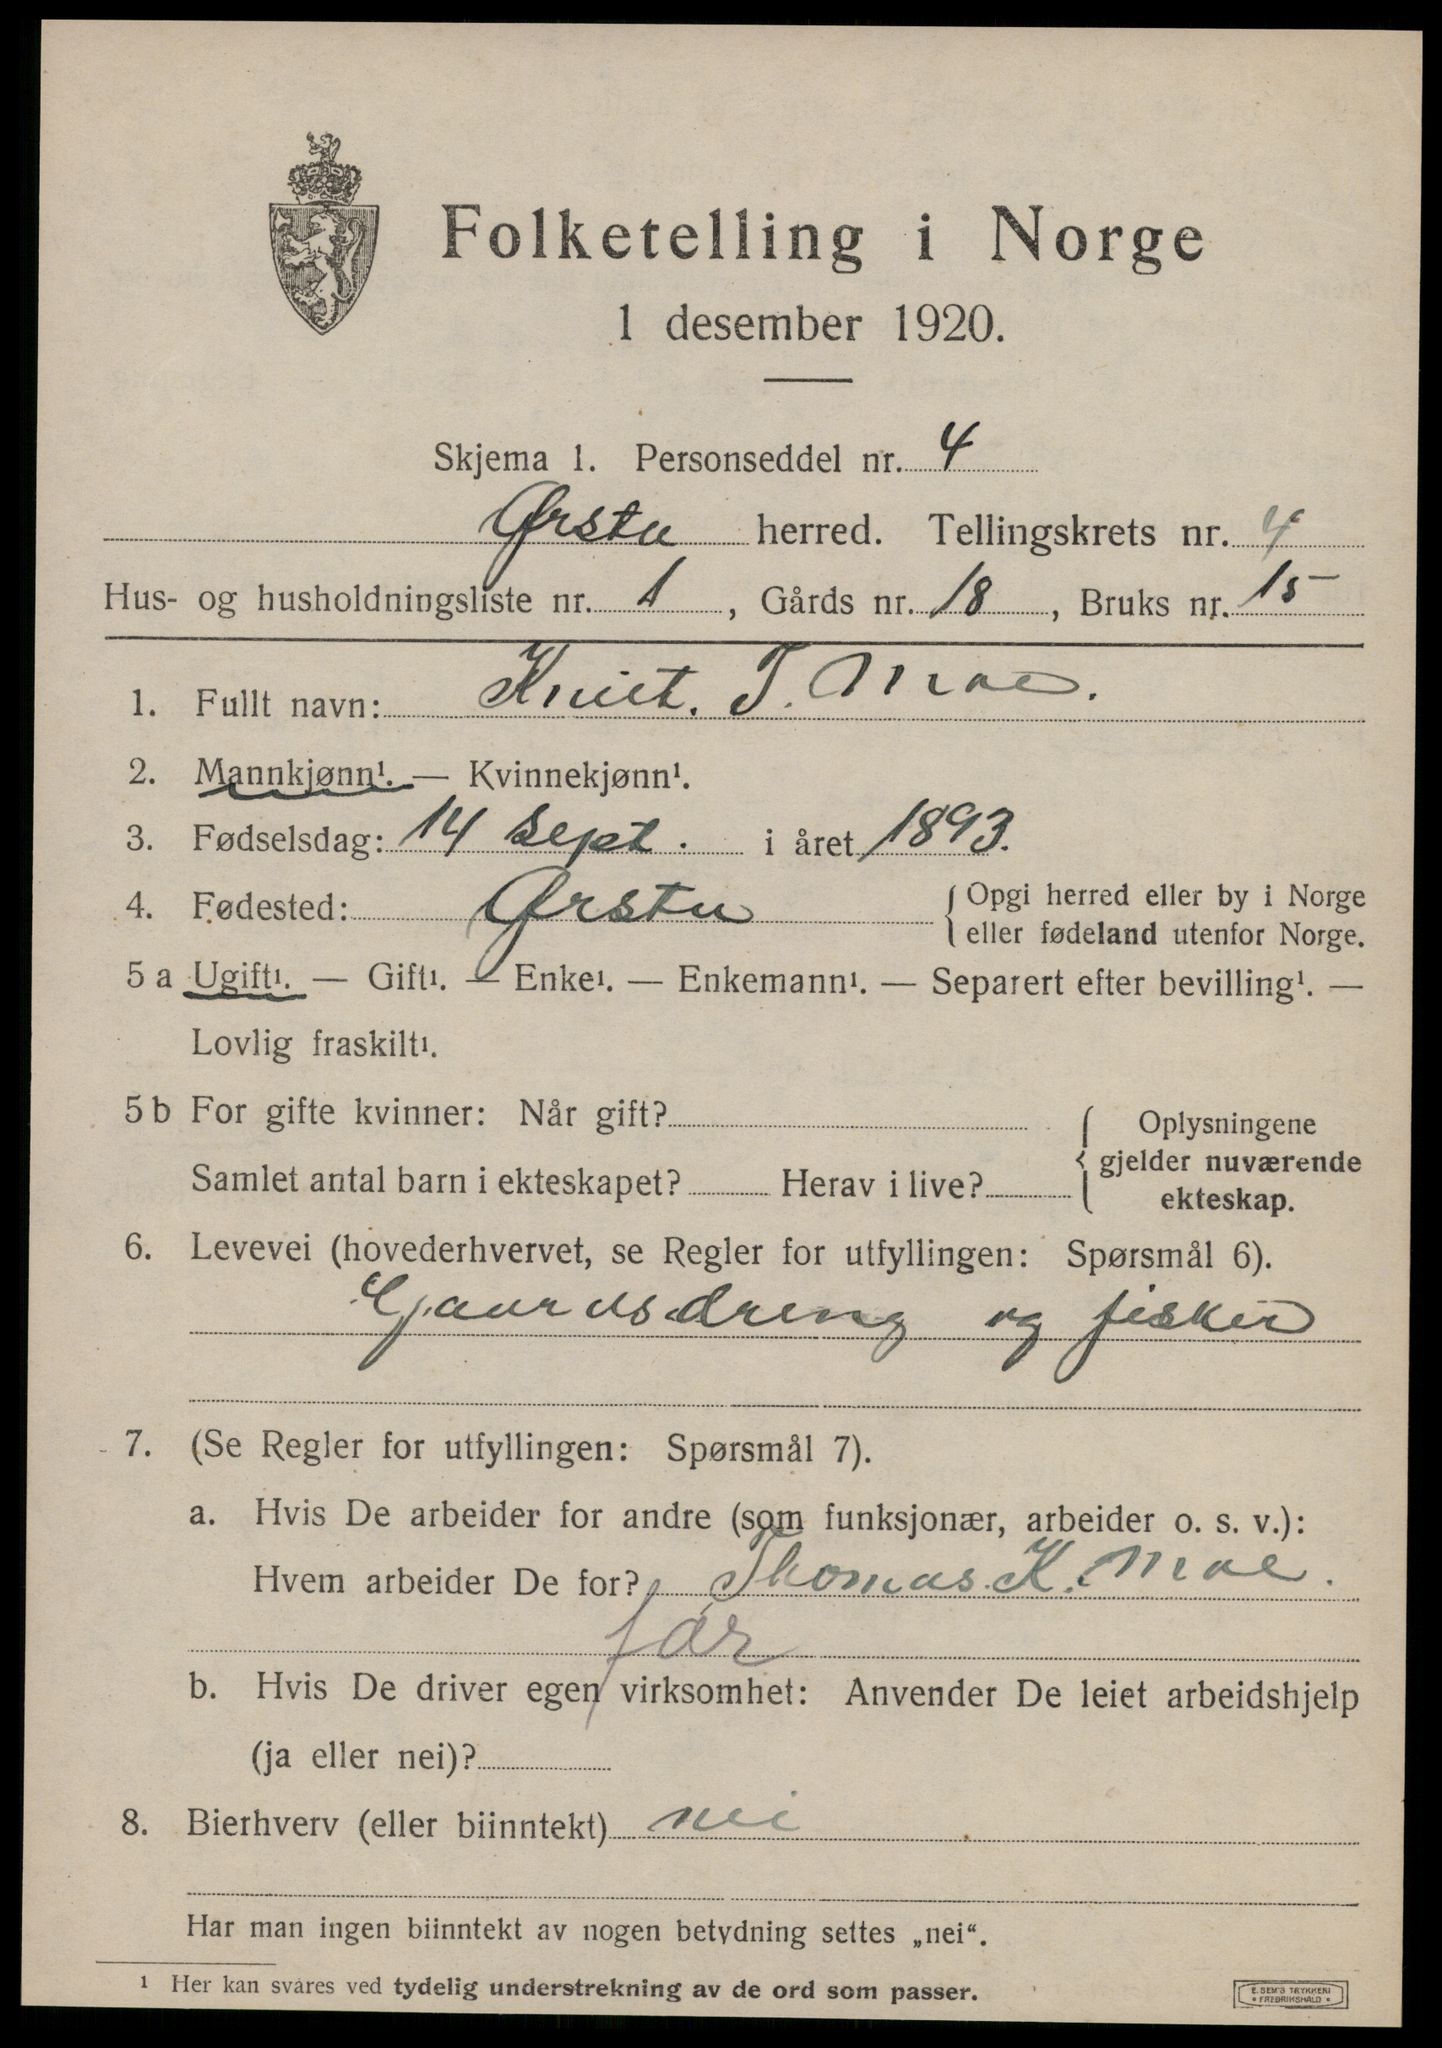 Folketelling i Norge
1 desember 1920.
Skjema 1. Personseddel nr. 4
Ørsta herred. Tellingskrets nr. 4
Hus- og husholdningsliste nr. 1, Gårds nr. 18, Bruks nr. 15
1. Fullt navn: Knut. T. Moe.
2. Mannkjønn¹. — Kvinnekjønn¹.
3. Fødselsdag: 14 sept. i året 1893.
4. Fødested: Ørsta { Opgi herred eller by i Norge
eller fødeland utenfor Norge.
5 a Ugift¹. — Gift¹. — Enke¹. — Enkemann¹. — Separert efter bevilling¹. —
Lovlig fraskilt¹.
5 b For gifte kvinner: Når gift? { Oplysningene
gjelder nuværende
Samlet antal barn i ekteskapet? Herav i live?
ekteskap.
6. Levevei (hovederhvervet, se Regler for utfyllingen: Spørsmål 6).
Gaardsdreng og fisker
7. (Se Regler for utfyllingen: Spørsmål 7).
a. Hvis De arbeider for andre (som funksjonær, arbeider o. s. v.):
Hvem arbeider De for? Thomas. K. Moe.
far
b. Hvis De driver egen virksomhet: Anvender De leiet arbeidshjelp
(ja eller nei)?
8. Bierhverv (eller biinntekt) nei
Har man ingen biinntekt av nogen betydning settes „nei“.
1 Her kan svares ved tydelig understrekning av de ord som passer.
E. SEM'S TRYKKERI
• FREDRIKSHALD •